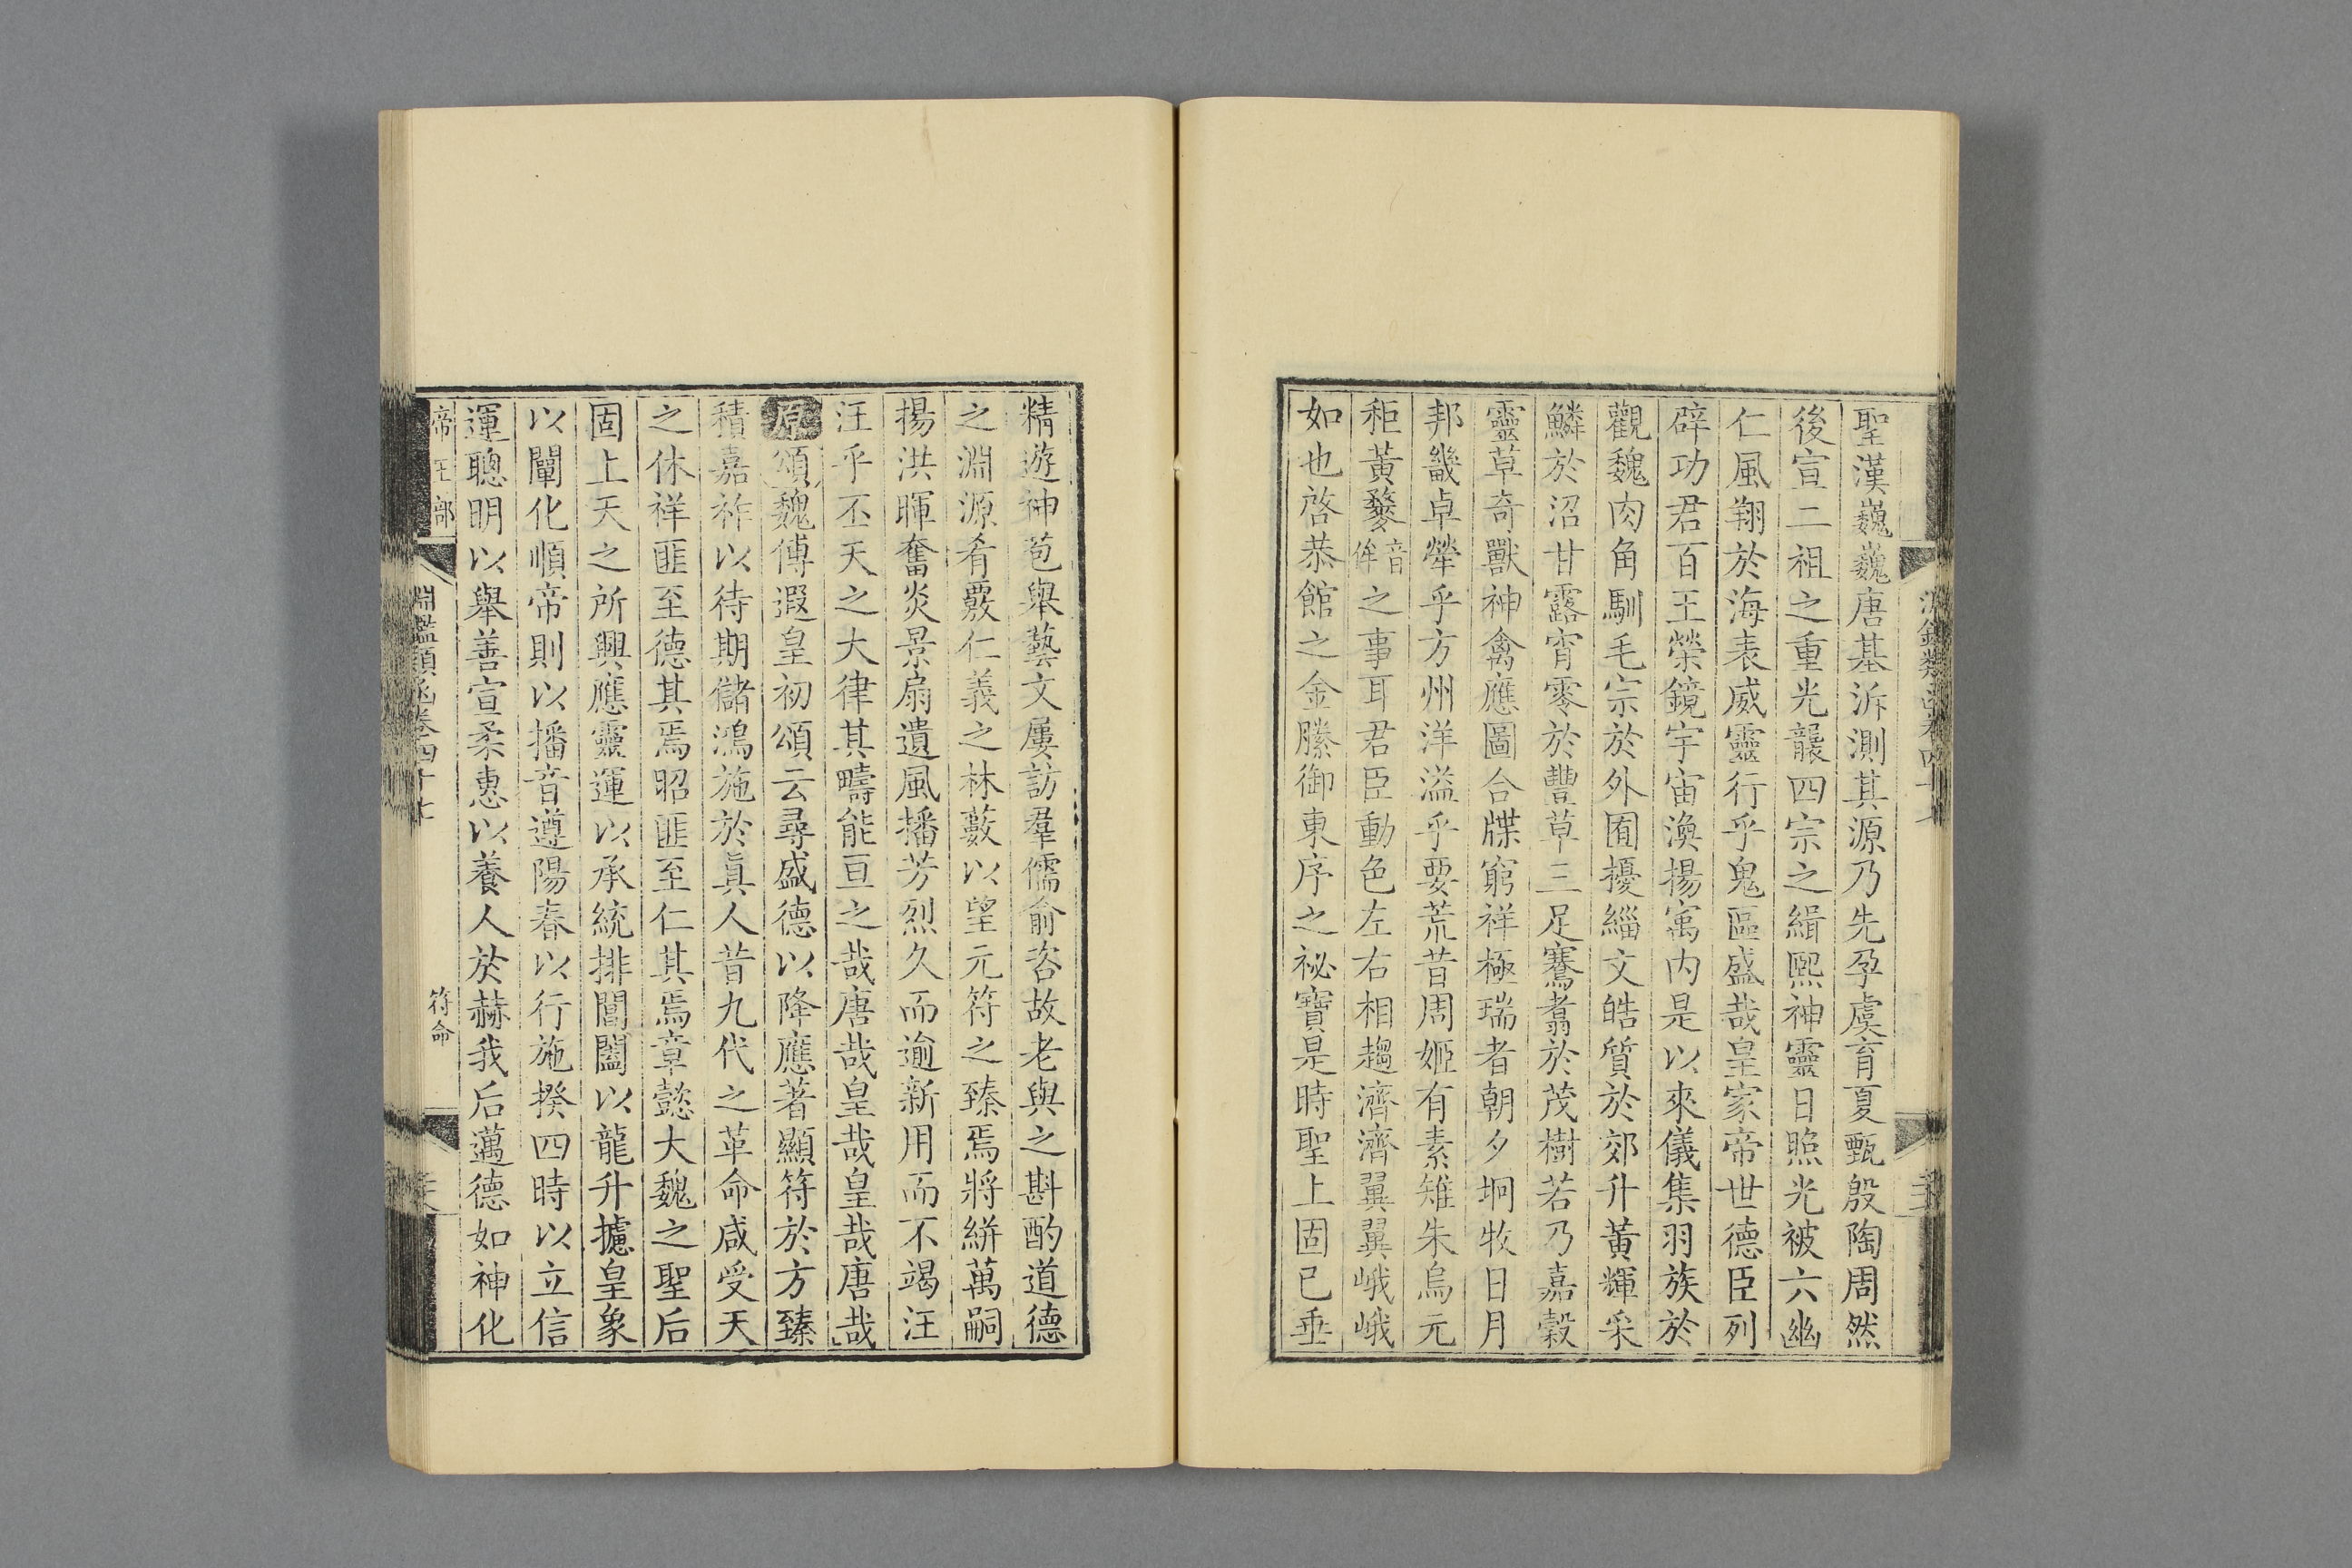 聖漢巍巍唐基泝測其源乃先孕虞育夏甄殷陶周然
後宣二祖之重光襲四宗之緝熙神靈日照光被六幽
仁風翔於海表威靈行乎鬼區盛哉皇家帝世德臣列
辟功君百王榮鏡宇宙渙揚寓内是以來儀集羽族於
觀魏肉角馴毛宗於外囿擾緇文皓質於郊升黃輝采
鱗於沼甘露宵零於豐草三足騫翥於茂樹若乃嘉穀
靈草奇獸神禽應圖合牒窮祥極瑞者朝夕坰牧日月
邦畿卓犖乎方州洋溢乎要荒昔周姬有素雉朱烏元
秬黃䴢音侔之事耳君臣動色左右相趨濟濟翼翼峨峨
如也啓恭館之金縢御東序之祕寶是時聖上固已垂
精遊神苞舉藝文屢訪羣儒俞咨故老與之斟酌道德
之淵源肴覈仁義之林藪以望元符之臻焉將絣萬嗣
揚洪暉奮炎景扇遺風播芳烈久而逾新用而不竭汪
汪乎丕天之大律其疇能亘之哉唐哉皇哉皇哉唐哉
原頌魏傅遐皇初頌云尋盛德以降應著顯符於方臻
積嘉祚以待期儲鴻施於眞人昔九代之革命咸受天
之休祥匪至德其焉昭匪至仁其焉章懿大魏之聖后
固上天之所興應靈運以承統排閶闔以龍升攄皇象
以闡化順帝則以播音遵陽春以行施揆四時以立信
運聰明以舉善宣柔惠以養人於赫我后邁德如神化
帝王部
淵鑑類函卷四十七
符命